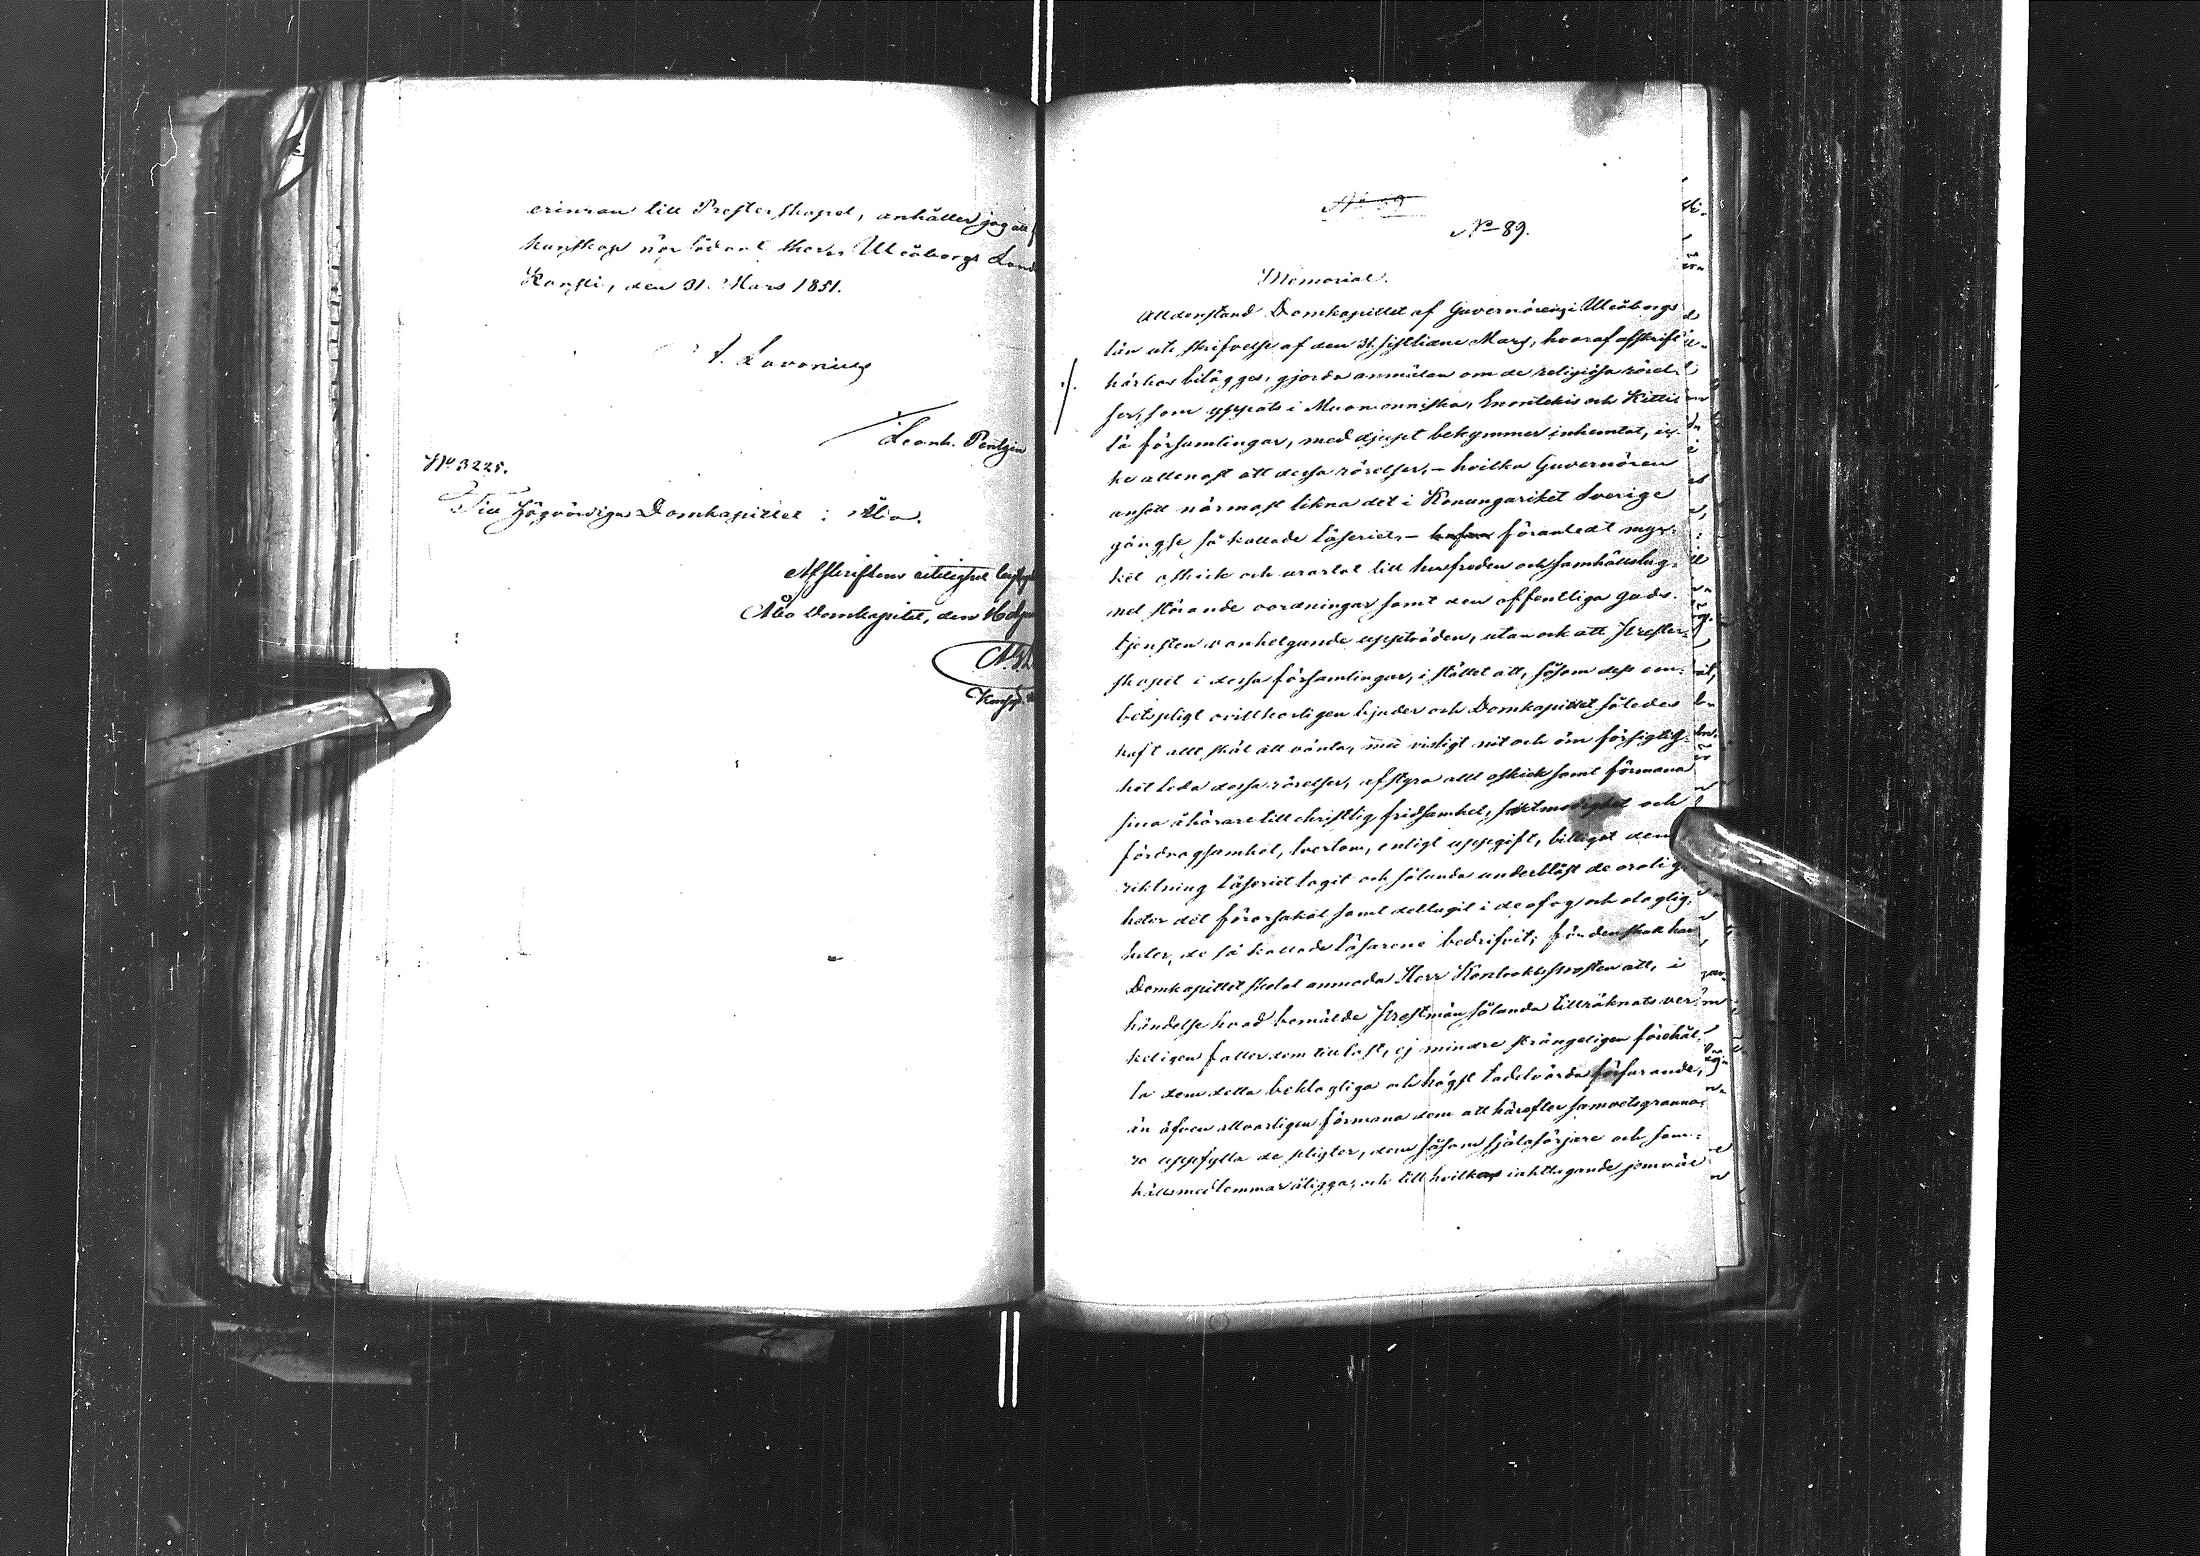 erinran till Presterskapet, anhåller jag att
kunskap när sådant sker. Uleåborgs Lands
Kansli, den 31. Mars 1851.
A. Lavonius
Leonh. Pentzin
No 3225.
Till Högvördiga Domkapitlet i Åbo.
Afskriftens riktighet betyg
Åbo Domkapitel, den 16
No 89
No 89.
Memorial.
Alldenstund Domkapitlet af Guvernören i Uleåborgs
län uti skrifvelse af den 31 sistlidne Mars, hvaraf afskrift
härhos bilägges, gjorda anmälan om de religiösa rörel-
ser, som yppats i Muonionniska, Enontekis och Kitti-
lä församlingar, med djupt bekymmer inhemtat, ic-
ke allenast att dessa rörelser, – hvilka Guvernören
ansett närmast likna det i Konungariket Sverige
gängse så kallade läseriet, – föranledt myc-
ket oskick och urartat till husfreden och samhällslug-
net störande oordningar samt den offentliga guds-
tjensten vanhelgande uppträden, utan ock att Prester-
skapet i dessa församlingar, i stället att, såsom dess em-
betspligt ovillkorligen bjuder och Domkapitlet således
haft allt skäl att vänta, med visligt nit och öm försigtig-
het leda dessa rörelser, afstyra allt oskick samt förmana
sina åhörare till christlig fridsamhet, saktmodighet och
fördragsamhet, tvertom, enligt uppgift, billigat den
riktning läseriet tagit och sålunda underblåst de orolig-
heter det förorsakat samt deltagit i de ofog och olaglig-
heter, de så kallade läsarene bedrifvit; för den skull har
Domkapitlet skolat anmoda Herr Kontraktsprosten att, i
händelse hvad bemälde Prestmän sålunda tillräknats ver-
keligen faller dem till last, ej mindre strängeligen förehål-
la dem detta beklagliga och högst tadelvärda förfarande,
än äfven allvarligen förmana dem att härefter samvetsgranna-
re uppfylla de pligter, dem såsom själasörjare och sam-
hällsmedlemmar åligga, och till hvilkas iakttagande jemväl